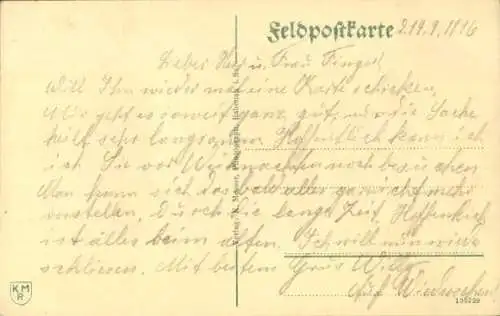 Feldpostkarte
d. 14.9.1916
Lieber Herr u. Frau Finger!
Will Ihn wieder mal eine Karte schicken,
Mir geht es soweit ganz gut, nur die Sache
heilt sehr langsam. Hoffentlich kann ich
ich Sie vor Weihnachten noch besuchen
Man kann sich das bald alles gar nicht mehr
vorstellen, durch die lange Zeit. Hoffentlich
ist alles beim alten. Ich will nun wieder
schliessen. Mit bestem Grus Willy
Auf Wiedersehen!
KM
R
135229